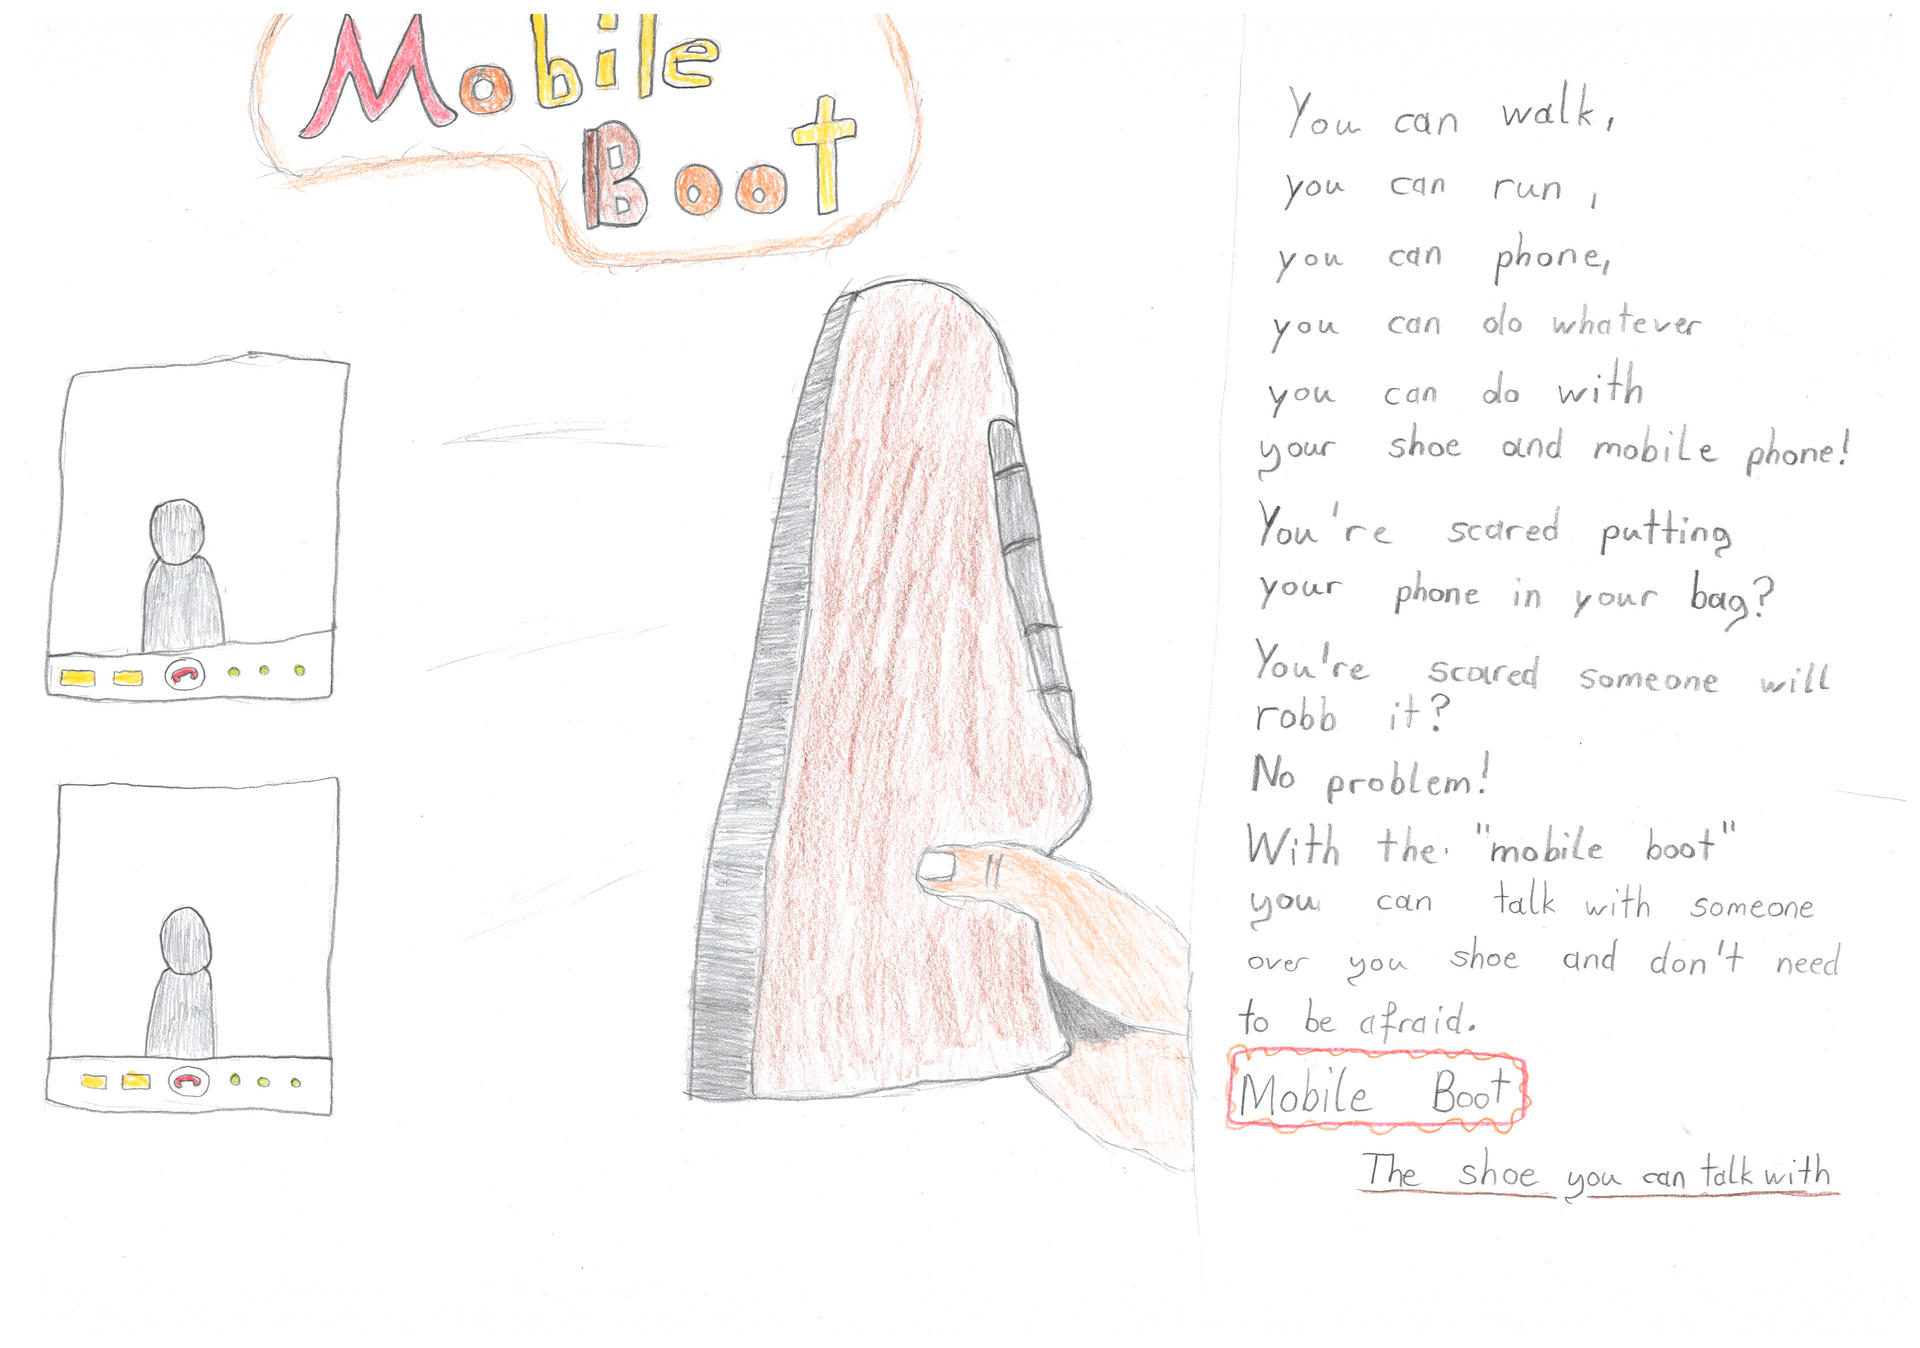 Mobile
Boot
You can walk,
you can run,
you can phone,
you can do whatever
you can do with
your shoe and mobile phone!
You're scared putting
your phone in your bag?
You're scared someone will
robb it?
No problem!
With the "mobile boot"
you can talk with someone
over you shoe and don't need
to be afraid.
Mobile Boot
The shoe you can talk with